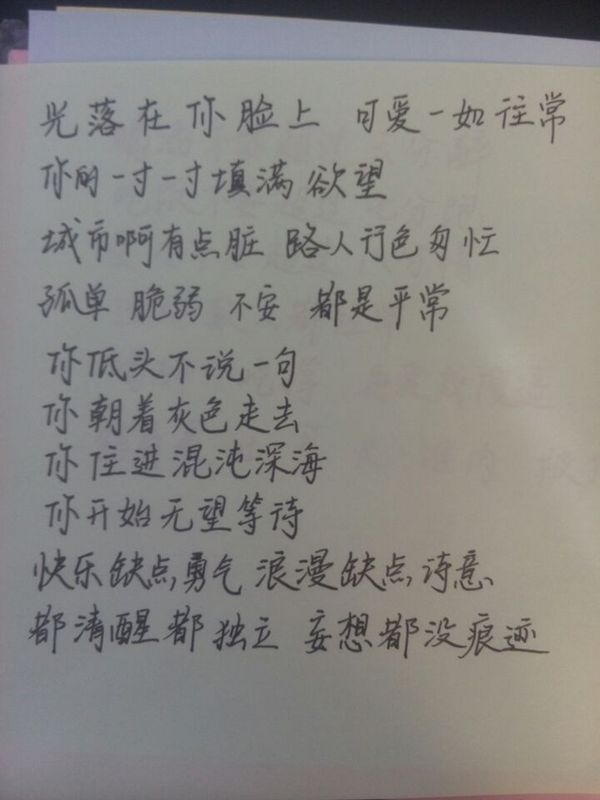 光落在你脸上 可爱一如往常
你的一寸一寸填满欲望
城市啊有点脏 路人行色匆忙
孤单 脆弱 不安 都是平常
你低头不说一句
你朝着灰色走去
你住进混沌深海
你开始无望等待
快乐缺点勇气 浪漫缺点诗意
都清醒都独立 妄想都没痕迹